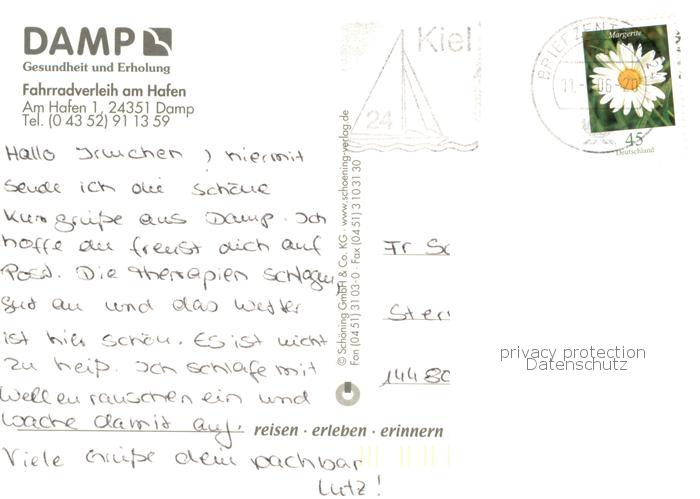 DAMP
Gesundheit und Erholung
Fahrradverleih am Hafen
Am Hafen 1, 24351 Damp
Tel. (0 43 52) 91 13 59
Hallo Irmchen, hiermit
sende ich die schöne
Kurgrüße aus Damp. Ich
hoffe du freust dich auf
Post. Die Therapien schlagen
gut an und das Wetter
ist hier schön. Es ist nicht
zu heiß. Ich schlafe mit
Wellenrauschen ein und
wache damit auf.
Viele Grüße dein Nachbar
Lutz!
reisen · erleben · erinnern
© Schöning GmbH & Co. KG · www.schoening-verlag.de
Fon (04 51) 3 10 3-0 · Fax (04 51) 3 10 31 30
Kiel
24
BRIEFZENT
Margerite
45
Deutschland
Fr Sc
Ster
14480
privacy protection
Datenschutz